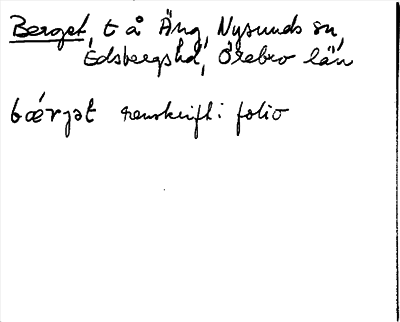 Berget, t å Äng, Nysunds sn,
Edsbergs hd, Örebro län
bǽrjət renskrift i folio